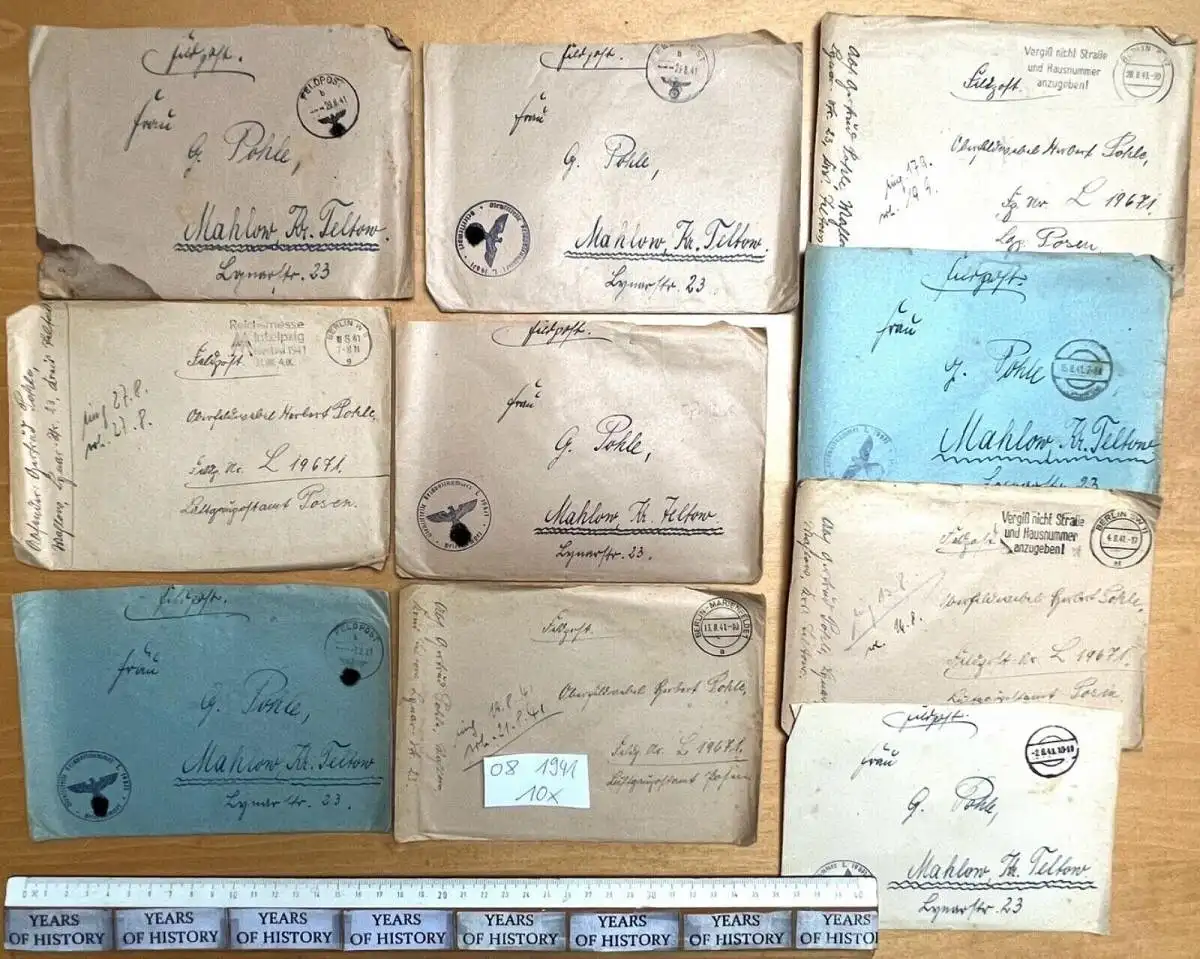 Feldpost.
FELDPOST
b
29.8.41
Frau
G. Pohle,
Mahlow, Kr. Teltow.
Lynarstr. 23
Feldpost.
b
Frau
G. Pohle,
Mahlow, Kr. Teltow.
Lynarstr. 23.
Vergiß nicht Straße
und Hausnummer
anzugeben!
Feldpost.
Oberfeldwebel Herbert Pohle,
Fp Nr. L 19671.
Lgp. Posen
Reichsmesse
Leipzig
BERLIN
Feldpost.
Absender: Gertrud Pohle,
Mahlow, Lynar-Str. 23, Kreis Teltow
27.8.
27.8.
Oberfeldwebel Herbert Pohle,
Feldp. Nr. L 19671.
Luftgaupostamt Posen.
Feldpost.
Frau
G. Pohle,
Mahlow, Kr. Teltow
Lynarstr. 23.
Feldpost.
Frau
G. Pohle
Mahlow, Kr. Teltow
Lynarstr. 23
Vergiß nicht Straße
und Hausnummer
anzugeben!
BERLIN SW
4.8.41
Feldpost
Oberfeldwebel Herbert Pohle,
Feldpost Nr. L 19671.
Luftgaupostamt Posen
Feldpost.
FELDPOST
Frau
G. Pohle,
Mahlow, Kr. Teltow
Lynarstr. 23.
Feldpost.
BERLIN-MARIENFELDE
11.8.41
a
Oberfeldwebel Herbert Pohle,
Feldp. Nr. L 19671.
Luftgaupostamt Posen
08 1941
10x
Feldpost.
-2.8.41
Frau
G. Pohle,
Mahlow, Kr. Teltow
Lynarstr. 23
YEARS OF HISTORY
YEARS OF HISTORY
YEARS OF HISTORY
YEARS OF HISTORY
YEARS OF HISTORY
YEARS OF HISTORY
YEARS OF HISTORY
YEARS OF HISTO